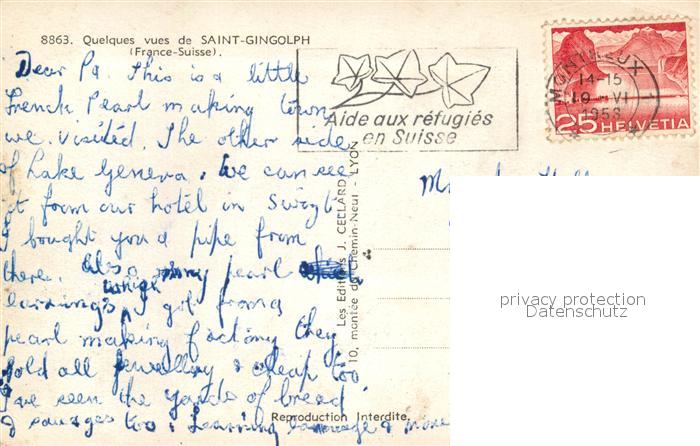 8863. Quelques vues de SAINT-GINGOLPH
(France-Suisse).
Dear Pa. This is a little
French Pearl making town
we visited. The other side
of Lake Geneva. We can see
it from our hotel in Switz
I bought you a pipe from
there. Also my pearl
earrings which I got from a
pearl making factory they
sold all jewellery & cheap too
I've seen the yards of bread
& sausages too. Learning language & more
Aide aux réfugiés
en Suisse
MONTREUX 1
14-15
10 VI
1958
25 HELVETIA
Les Editions J. CELLARD
10, montée du Chemin-Neuf - LYON
Reproduction Interdite.
privacy protection
Datenschutz